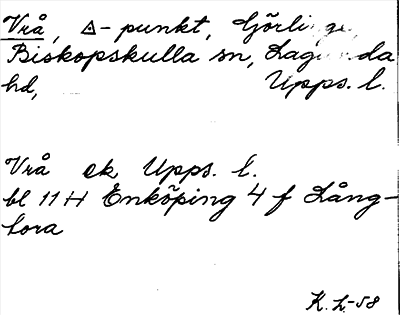 Vrå, △-punkt, Görlinge,
Biskopskulla sn, Lagunda
hd, Upps. l.
Vrå ek Upps. l.
bl 11 H Enköping 4 f Lång-
tora
K. L.-58